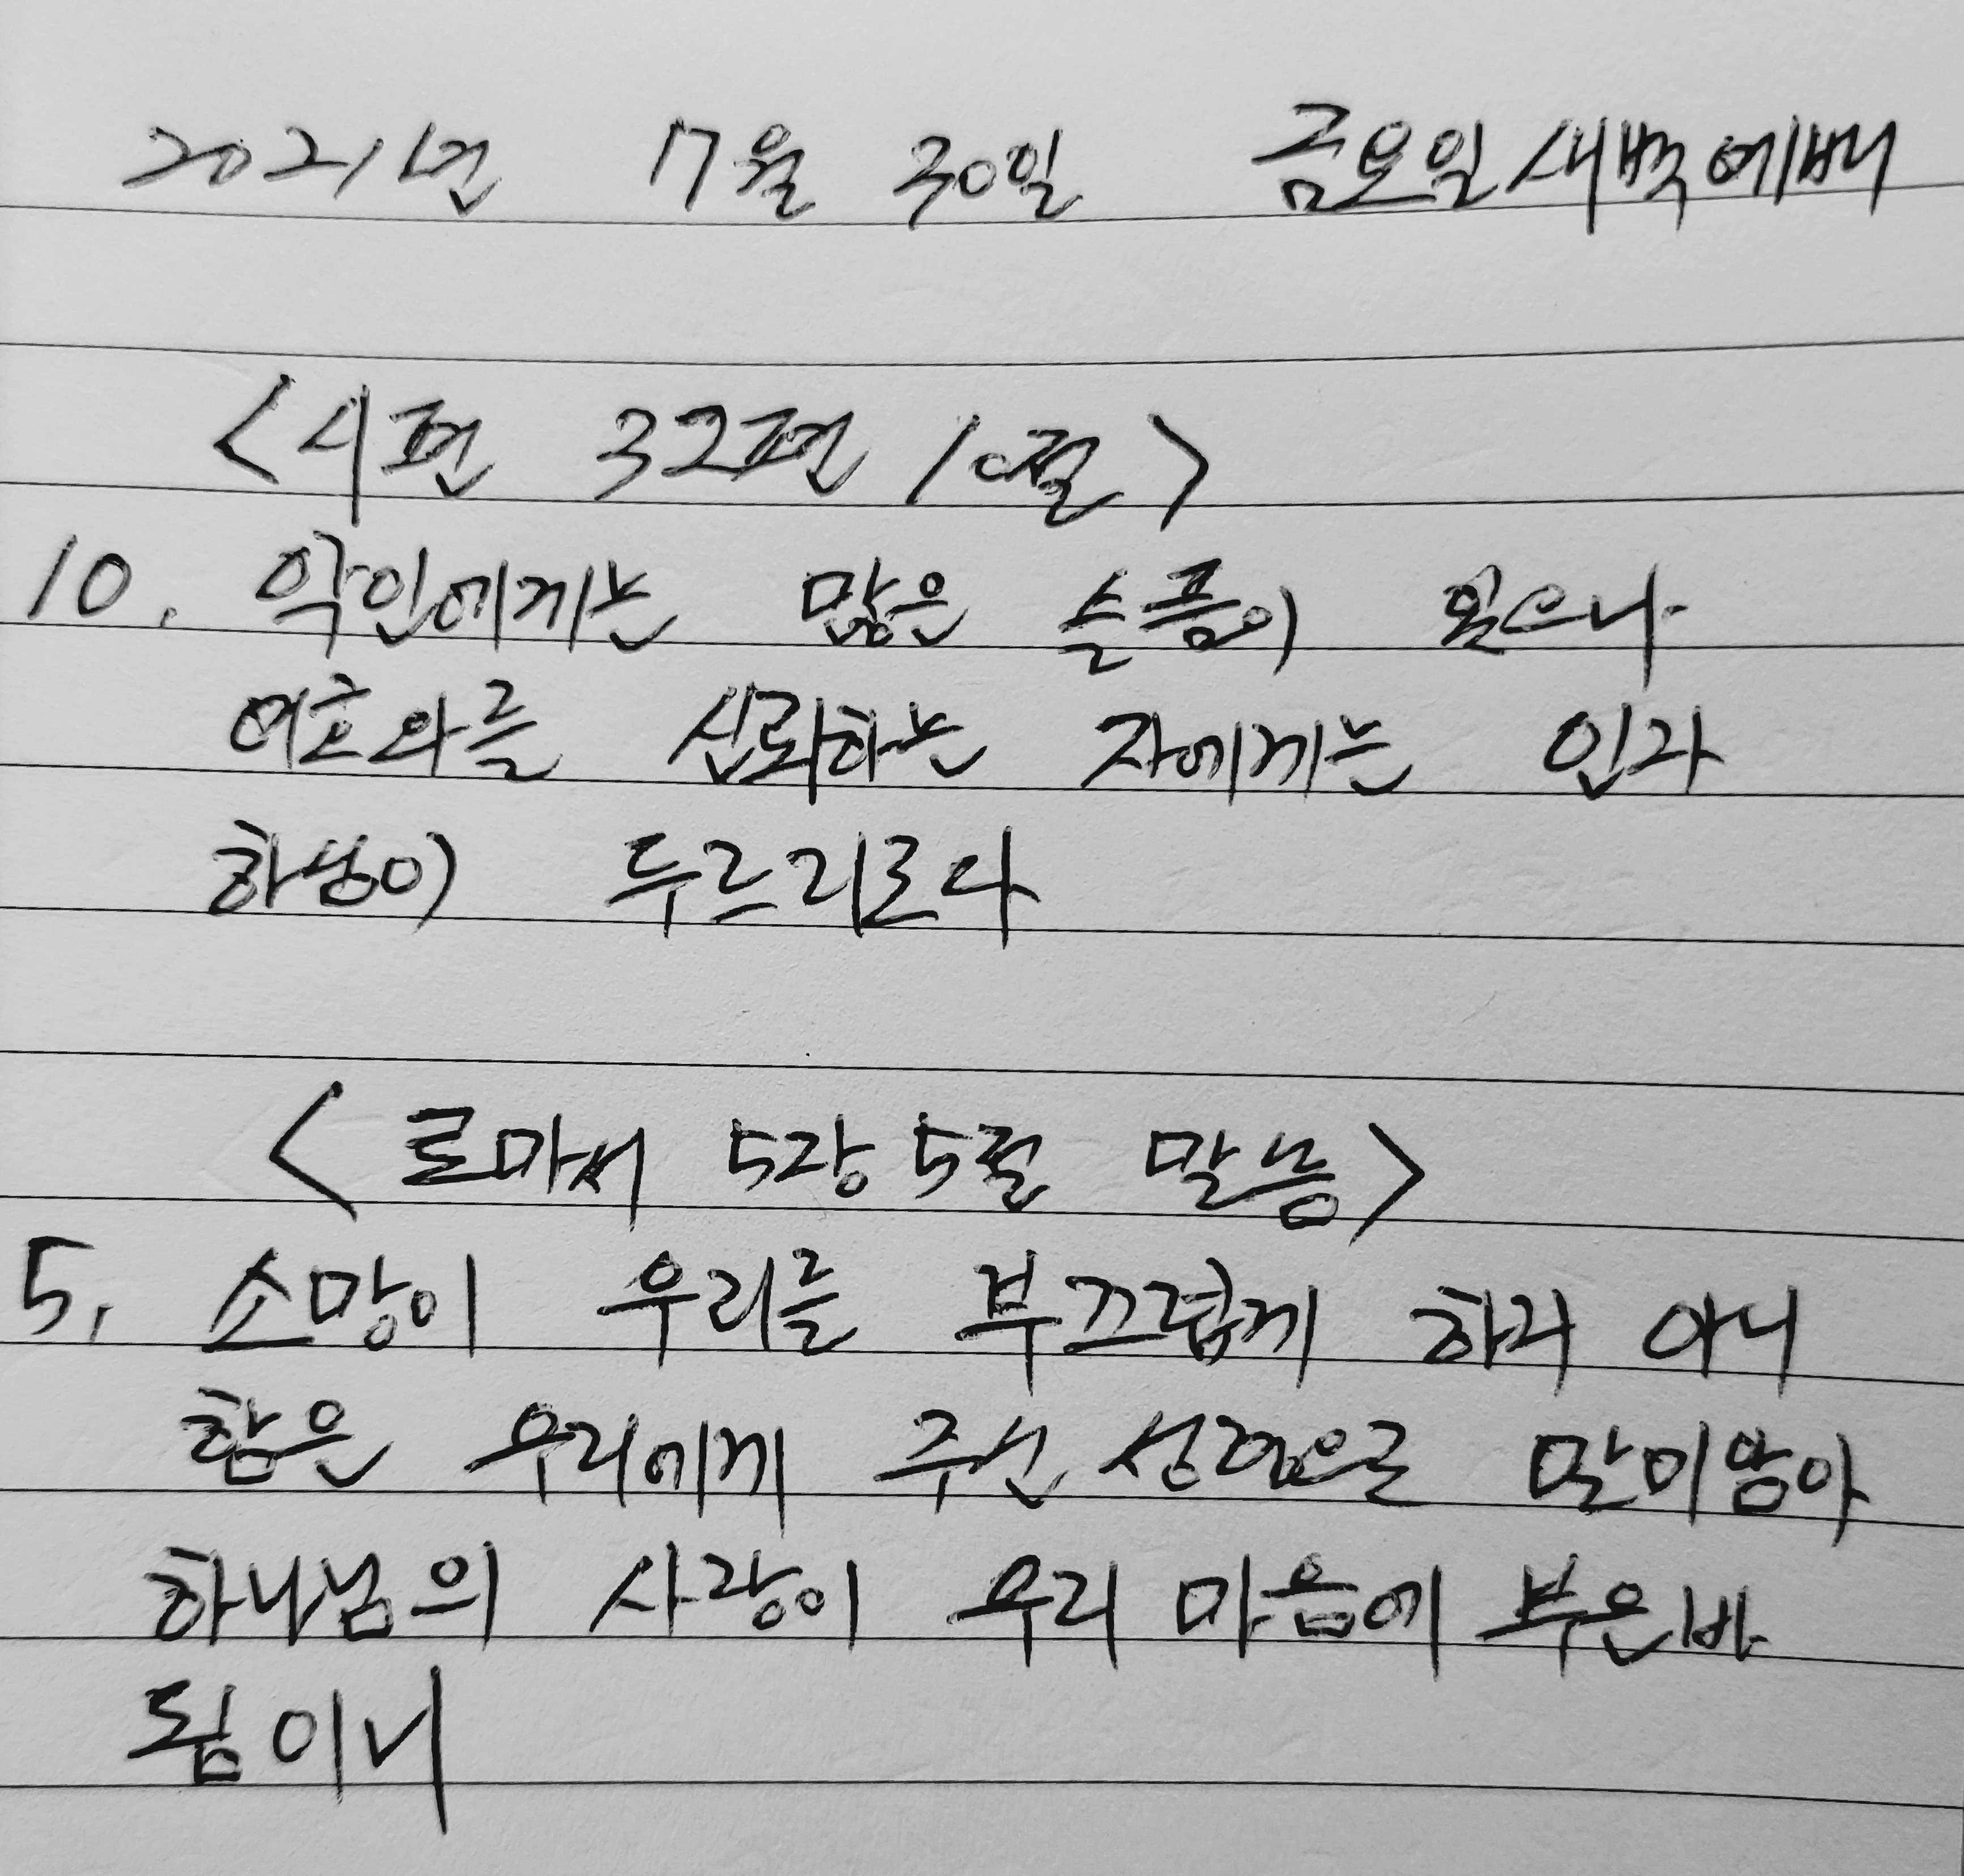 2021년 7월 30일 금요일새벽예배
<시편 32편 10절>
10. 악인에게는 많은 슬픔이 있으나
여호와를 신뢰하는 자에게는 인자
하심이 두르리로다
<로마서 5장 5절 말씀>
5. 소망이 우리를 부끄럽게 하지 아니
함은 우리에게 주신 성령으로 말미암아
하나님의 사랑이 우리 마음에 부은바
됨이니